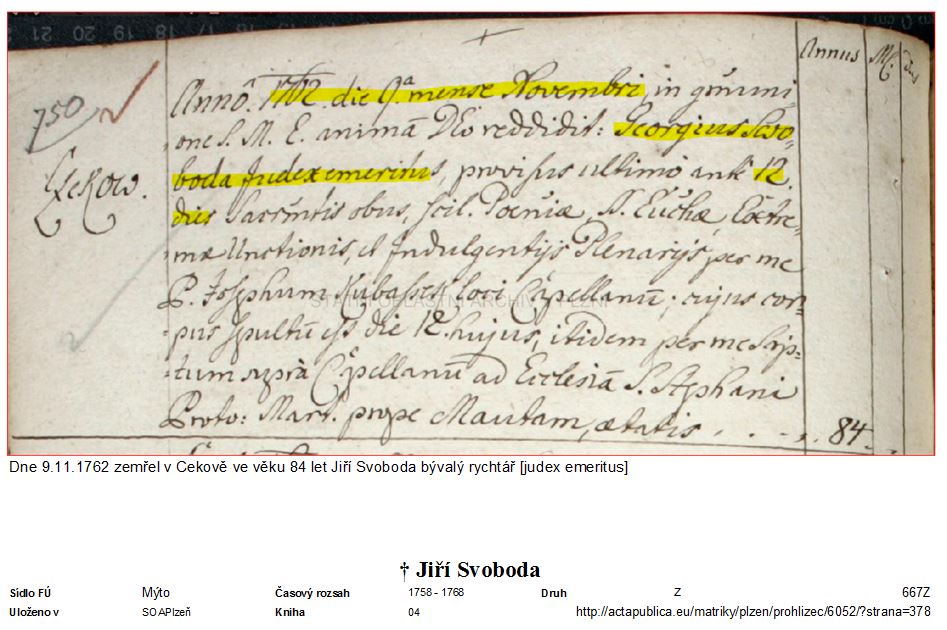 Annus
M.
Dies
750
Czekow.
Annô. 1762. die 9.ª mense Novembri, in gm̃uni-
one S. M. E. animã DEo reddidit: Georgius Swo-
boda Judex emeritus, provisus ultimo ante 12.
dies Sacrm̃tis obus, scil. Poeniæ, S. Euchæ, Extre-
mæ Unctionis, et Indulgentijs Plenarijs, per me
P. Josephum loci Capellanũ; cujus cor-
pus spultũ est die 12. hujus, itidem per me
tum suprà Capellanũ ad Ecclesiã S. Stephani
Proto: Mart. prope Mautam, ætatis . . . . 84.
STÁTNÍ OBLASTNÍ ARCHIV V PLZNI
Dne 9.11.1762 zemřel v Cekově ve věku 84 let Jiří Svoboda bývalý rychtář [judex emeritus]
† Jiří Svoboda
Sídlo FÚ Mýto Časový rozsah 1758 - 1768 Druh Z 667Z
Uloženo v SOAPlzeň Kniha 04 http://actapublica.eu/matriky/plzen/prohlizec/6052/?strana=378